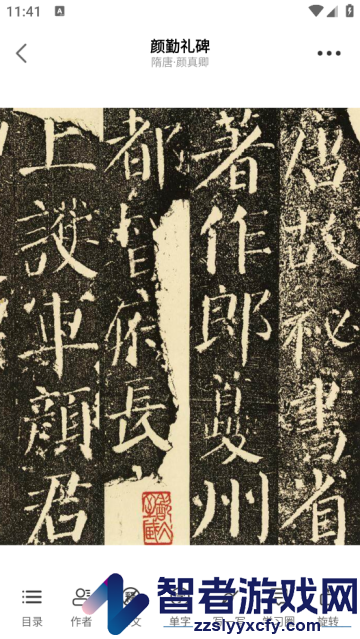 11:41
A
颜勤礼碑
隋唐·颜真卿
唐故秘書省
著作郎夔州
都督府長
上護軍顏君
目录
作者
文
单字
写一写
学习圈
旋转
智者游戏网
www.zzslyyxcfy.com